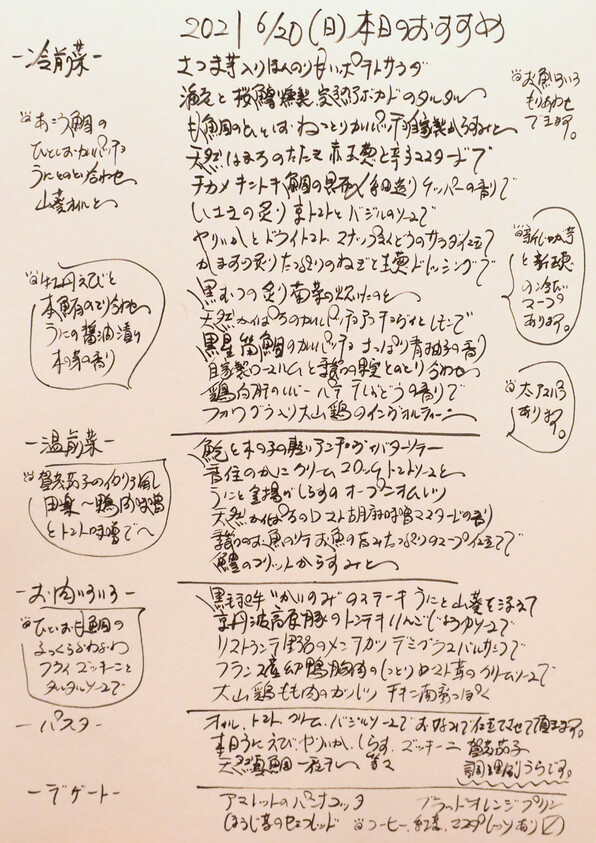 2021 6/20(日)本日のおすすめ
-冷前菜-
さつま芋入りほんのり甘いポテトサラダ
海老と桜鱒燻製、完熟アボカドのタルタル
天然まぐろのたたき 赤玉葱と辛子マスタードで
チカメキントキ鯛の昆布〆 細造り ケッパーの香りで
いさきの炙り 京トマトとバジルのソースで
やりいかとドライトマト スナップえんどうのサラダ仕立て
かますの炙り たっぷりのねぎと生姜ドレッシングで
黒むつの炙り 南菜の炊いたのと
天然かんぱちのカルパッチョ アンチョヴィとレモンで
黒星笛鯛のカルパッチョ さっぱり青柚子の香り
自家製ロースハムと季節の果実とのとり合わせ
鶏白肝のレバーパテ
フォワグラ入り大山鶏のインヴォルティーニ
あこう鯛の
ひとしおカルパッチョ
うにとのとり合わせ
山葵オイルと
牡丹えびと
本鮪のとり合わせ
うにの醤油漬け
木の芽の香り
お魚いろいろ
もりあわせ
できます。
新じゃが芋
と新玉葱
の冷たい
スープ
あります。
太アスパラ
あります。
-温前菜-
鮑と木の子の軽いアンチョヴィバターソテー
香住のかにクリームコロッケ トマトソースと
うにと釜揚げしらすのオープンオムレツ
天然かんぱちのロースト 胡麻味噌マスタードの香り
季節のお魚のソテー お魚の旨みたっぷりのスープ仕立てで
鱧のフリット からすみと
賀茂茄子の
田楽〜鴨肉味噌
とトマト味噌で〜
-お肉いろいろ-
黒毛和牛“かいのみ”のステーキ うにと山葵を添えて
京丹波高原豚のトンテキ りんごしょうゆソースで
リストランテ野呂のメンチカツ デミグラスバルサミコで
フランス産幼鴨胸肉のしっとりロースト 苺のクリームソースで
大山鶏もも肉のカツレツ チキン南蛮っぽく
ひとしお鯛の
ふっくらふわふわ
フライ ズッキーニと
タルタルソースで
-パスタ-
オイル、トマト、クリーム、バジルソースでお好みで仕立てさせて頂きます。
本日うに、えび、やりいか、しらす、ズッキーニ 賀茂茄子
天然真鯛 等々
調理例うらです。
-デザート-
アマレットのパンナコッタ ブラッドオレンジプリン
ほうじ茶のセミフレッド コーヒー、紅茶、エスプレッソあり